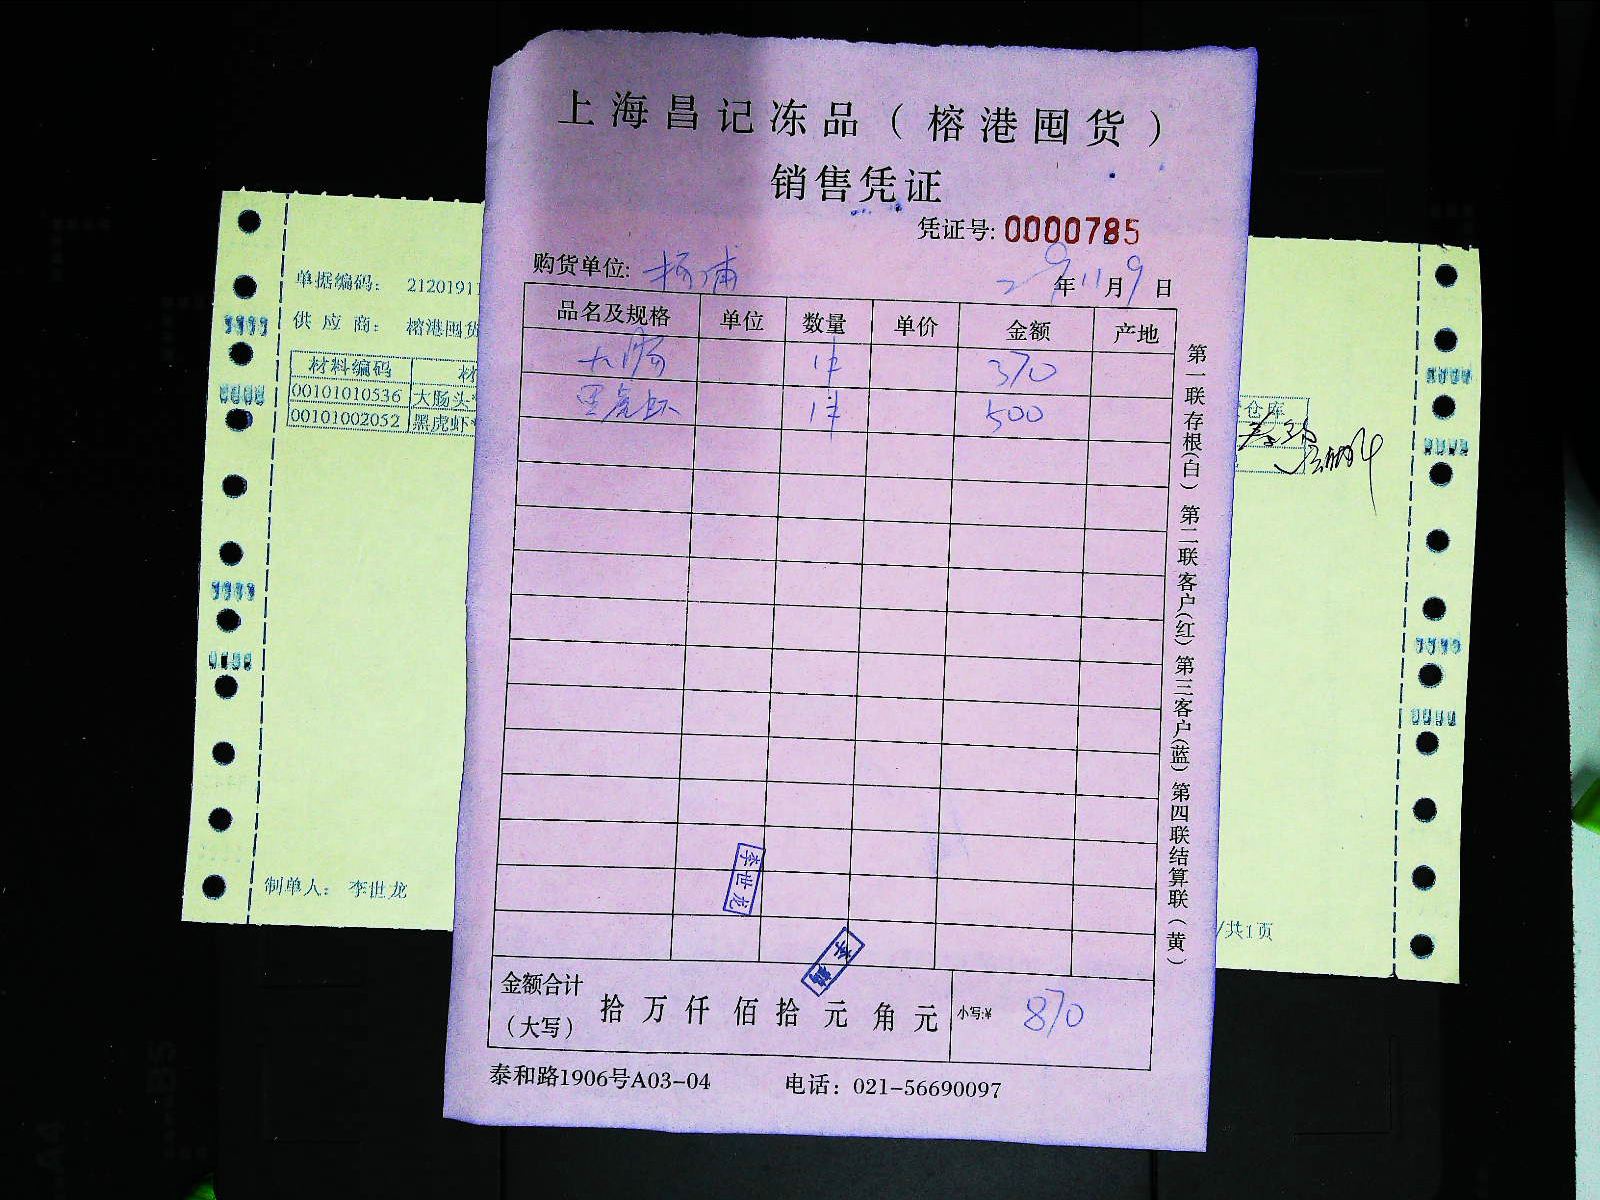 上海昌记冻品（榕港囤货）
销售凭证
凭证号: 0000785
购货单位: 杨浦
年11月9日
品名及规格 单位 数量 单价 金额 产地
大肠 1件 370
黑虎虾 1件 500
金额合计（大写） 拾万仟佰拾元角元 小写:¥ 870
泰和路1906号A03-04 电话：021-56690097
第一联存根(白) 第二联客户(红) 第三客户(蓝) 第四联结算联(黄)
李世龙
单据编码： 21201911
供应商： 榕港囤货
材料编码 材
00101010536 大肠头*
00101002052 黑虎虾*
仓库
制单人： 李世龙
/共1页